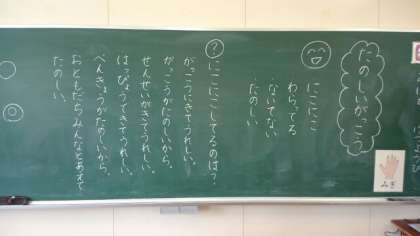 たのしいがっこう
にこにこ
わらってる
ないてない
たのしい
?
にこにこしてるのは?
がっこうにきてうれしい。
がっこうがたのしいから。
せんせいがきてうれしい。
はっぴょうできてうれしい。
べんきょうがたのしいから。
おともだちみんなとあえて
たのしい。
みぎ